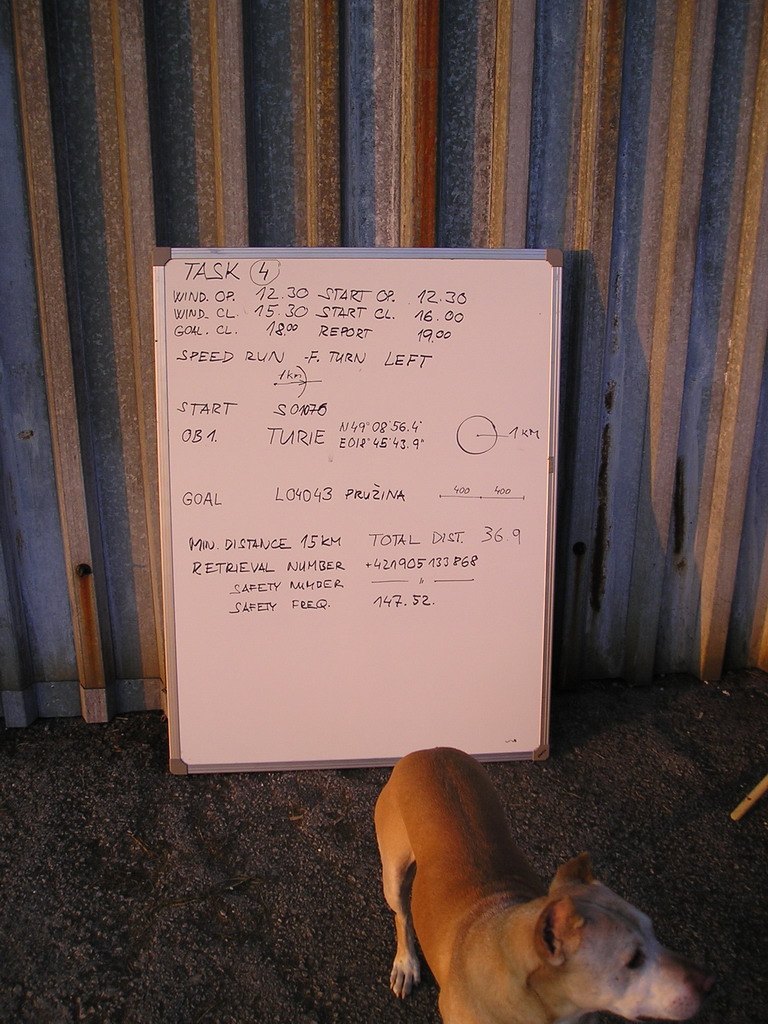 TASK 4
WIND. OP. 12.30 START OP. 12.30
WIND. CL. 15.30 START CL. 16.00
GOAL. CL. 18.00 REPORT 19.00
SPEED RUN - F. TURN LEFT
1km
START S01076
OB1. TURIE N49° 08' 56.4" E018° 45' 43.9" 1 KM
GOAL L04043 PRUŽINA 400 400
MIN. DISTANCE 15 KM TOTAL DIST. 36.9
RETRIEVAL NUMBER +421905133868
SAFETY NUMBER — " —
SAFETY FREQ. 147.52.